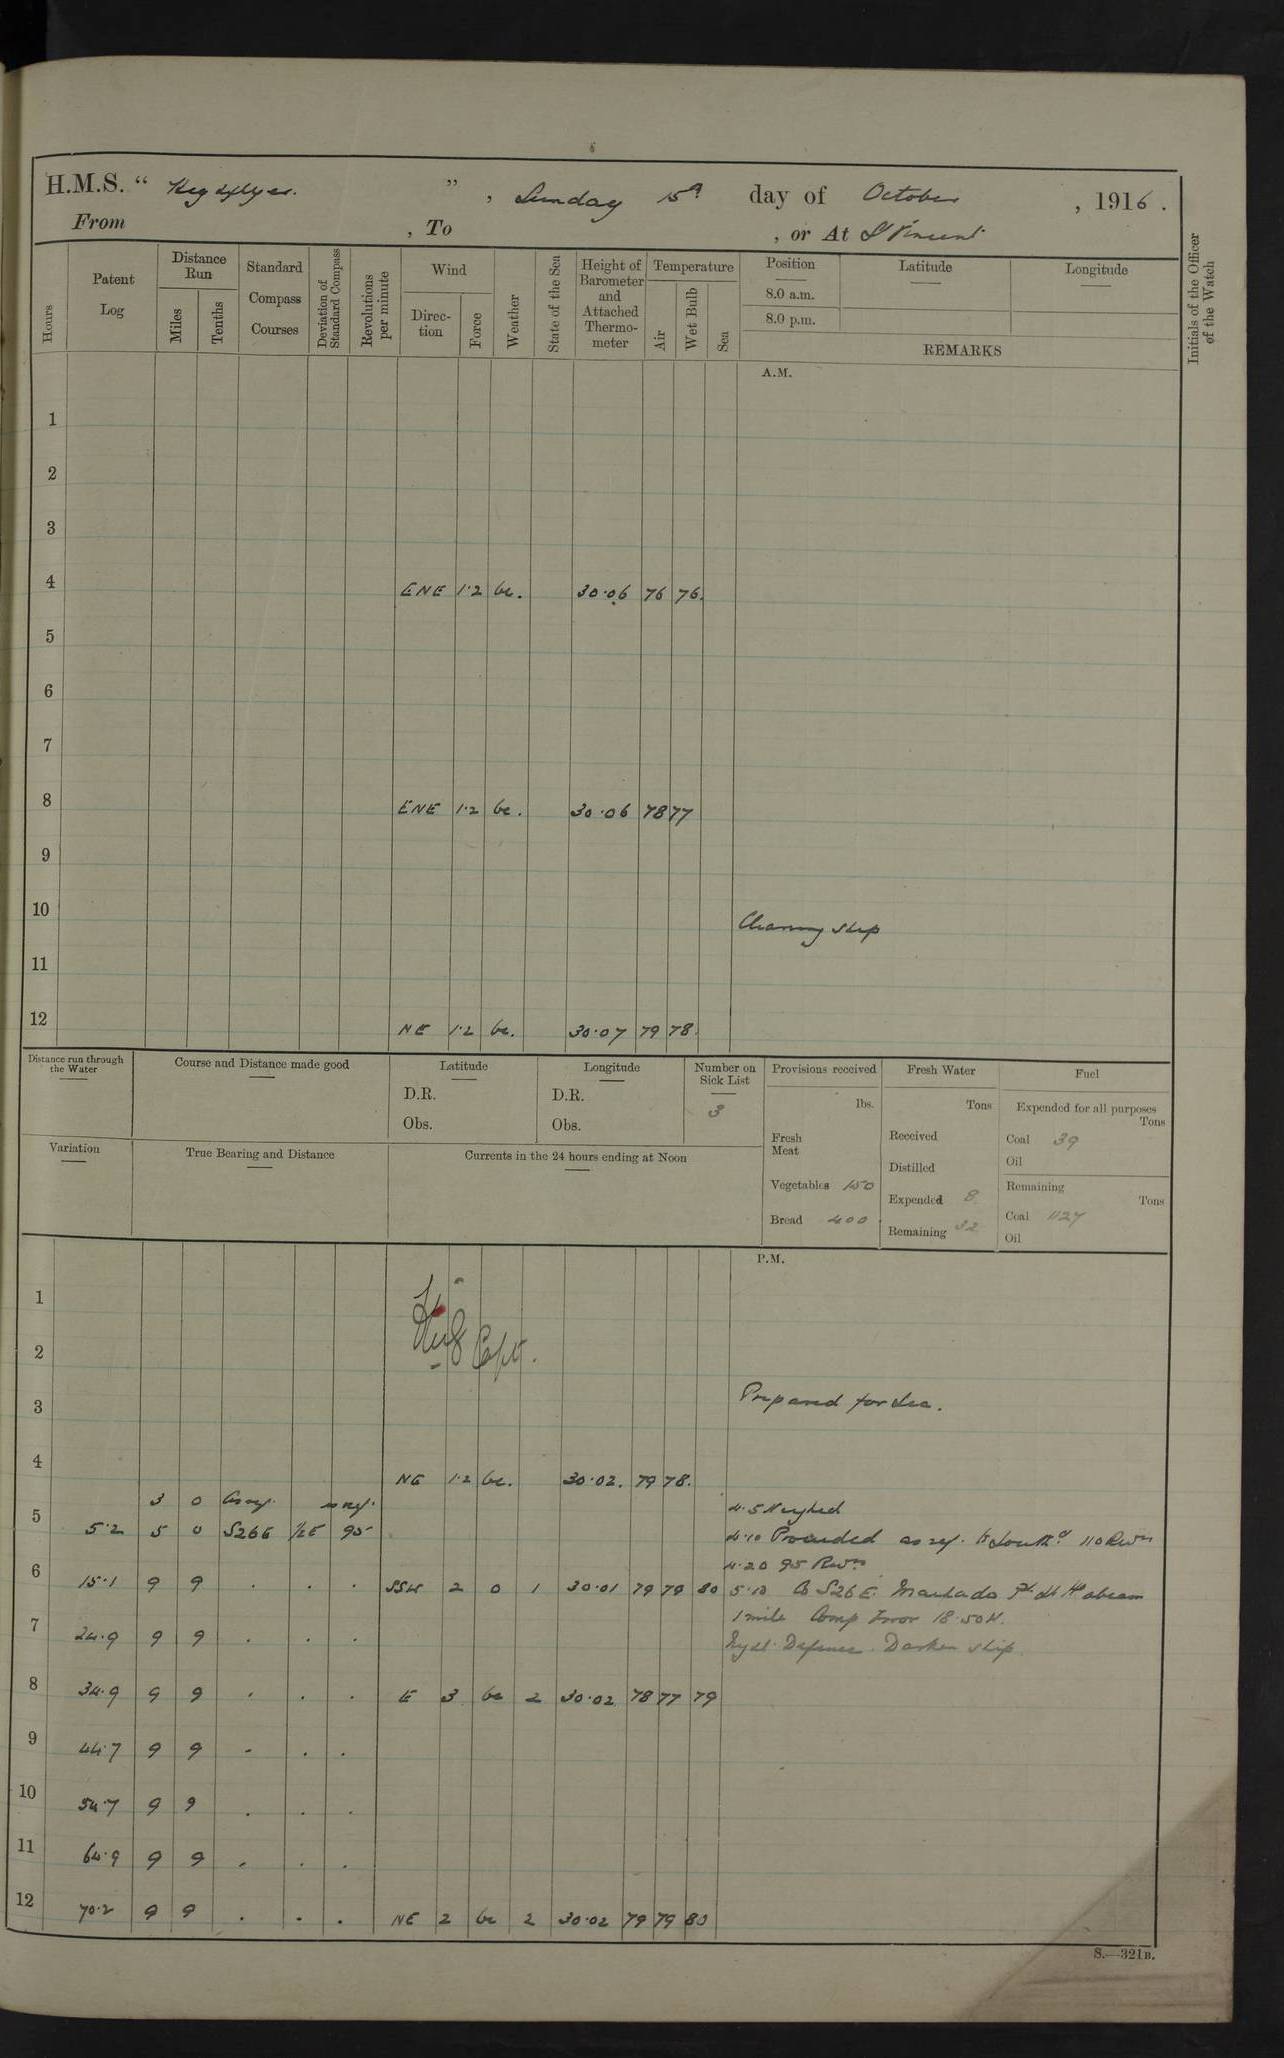 6
H.M.S. " Highflyer. ", Sunday 15th day of October, 1916.
From , To , or At St Vincent
Hours
Patent Log
Distance Run
Miles
Tenths
Standard Compass Courses
Deviation of Standard Compass
Revolutions per minute
Wind
Direction
Force
Weather
State of the Sea
Height of Barometer and Attached Thermometer
Temperature
Air
Wet Bulb
Sea
Position
8.0 a.m.
8.0 p.m.
Latitude
Longitude
REMARKS
Initials of the Officer of the Watch
A.M.
1
2
3
4 ENE 1·2 bc. 30·06 76 76.
5
6
7
8 ENE 1·2 bc. 30·06 78 77
9
10 Cleaning ship
11
12 NE 1·2 bc. 30·07 79 78.
Distance run through the Water
Course and Distance made good
Latitude
D.R.
Obs.
Longitude
D.R.
Obs.
Number on Sick List
3
Provisions received
lbs.
Fresh Meat
Vegetables 150
Bread 400
Fresh Water
Tons
Received
Distilled
Expended 8
Remaining 32
Fuel
Expended for all purposes
Tons
Coal 39
Oil
Remaining
Tons
Coal 1127
Oil
Variation
True Bearing and Distance
Currents in the 24 hours ending at Noon
P.M.
1
2 Capt.
3 Prepared for Sea.
4 NE 1·2 bc. 30·02. 79 78.
3 0 As req. as req. 4·5 Weighed
5 5·2 5 0 S26E ½E 95 4·10 Proceeded as req. to South'd 110 Revns
4·20 95 Revns
6 15·1 9 9 . . . SSW 2 0 1 30·01 79 79 80 5·10 Co S26E. Machado Pt Lt Ho abeam
1 mile Comp Error 18·50 W.
7 24·9 9 9 . . . Night Defence. Darken ship.
8 34·9 9 9 . . . E 3 bc 2 30·02 78 77 79
9 44·7 9 9 . . .
10 54·7 9 9 . . .
11 64·9 9 9 . . .
12 70·2 9 9 . . . NE 2 bc 2 30·02 79 79 80
S.—321B.